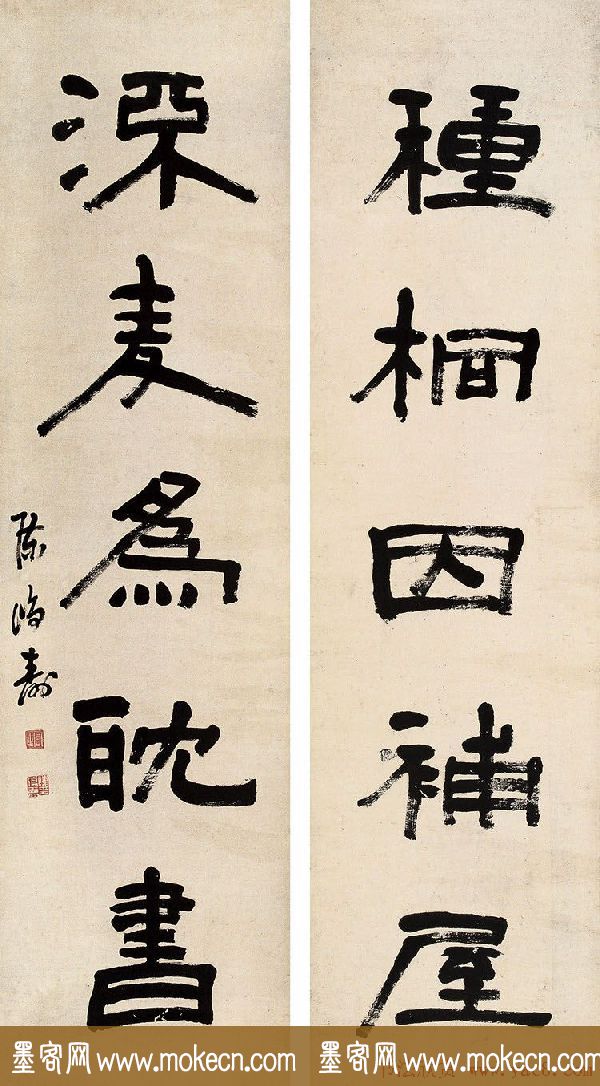 種桐因補屋
漂麦為耽書
陳鴻壽
墨客网 www.mokecn.com
墨客网 www.mokecn.com